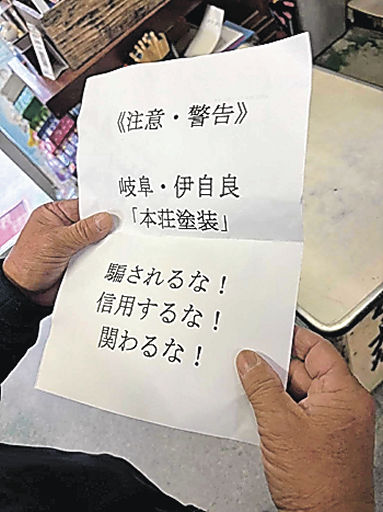 《注意・警告》
岐阜・伊自良
「本荘塗装」
騙されるな！
信用するな！
関わるな！